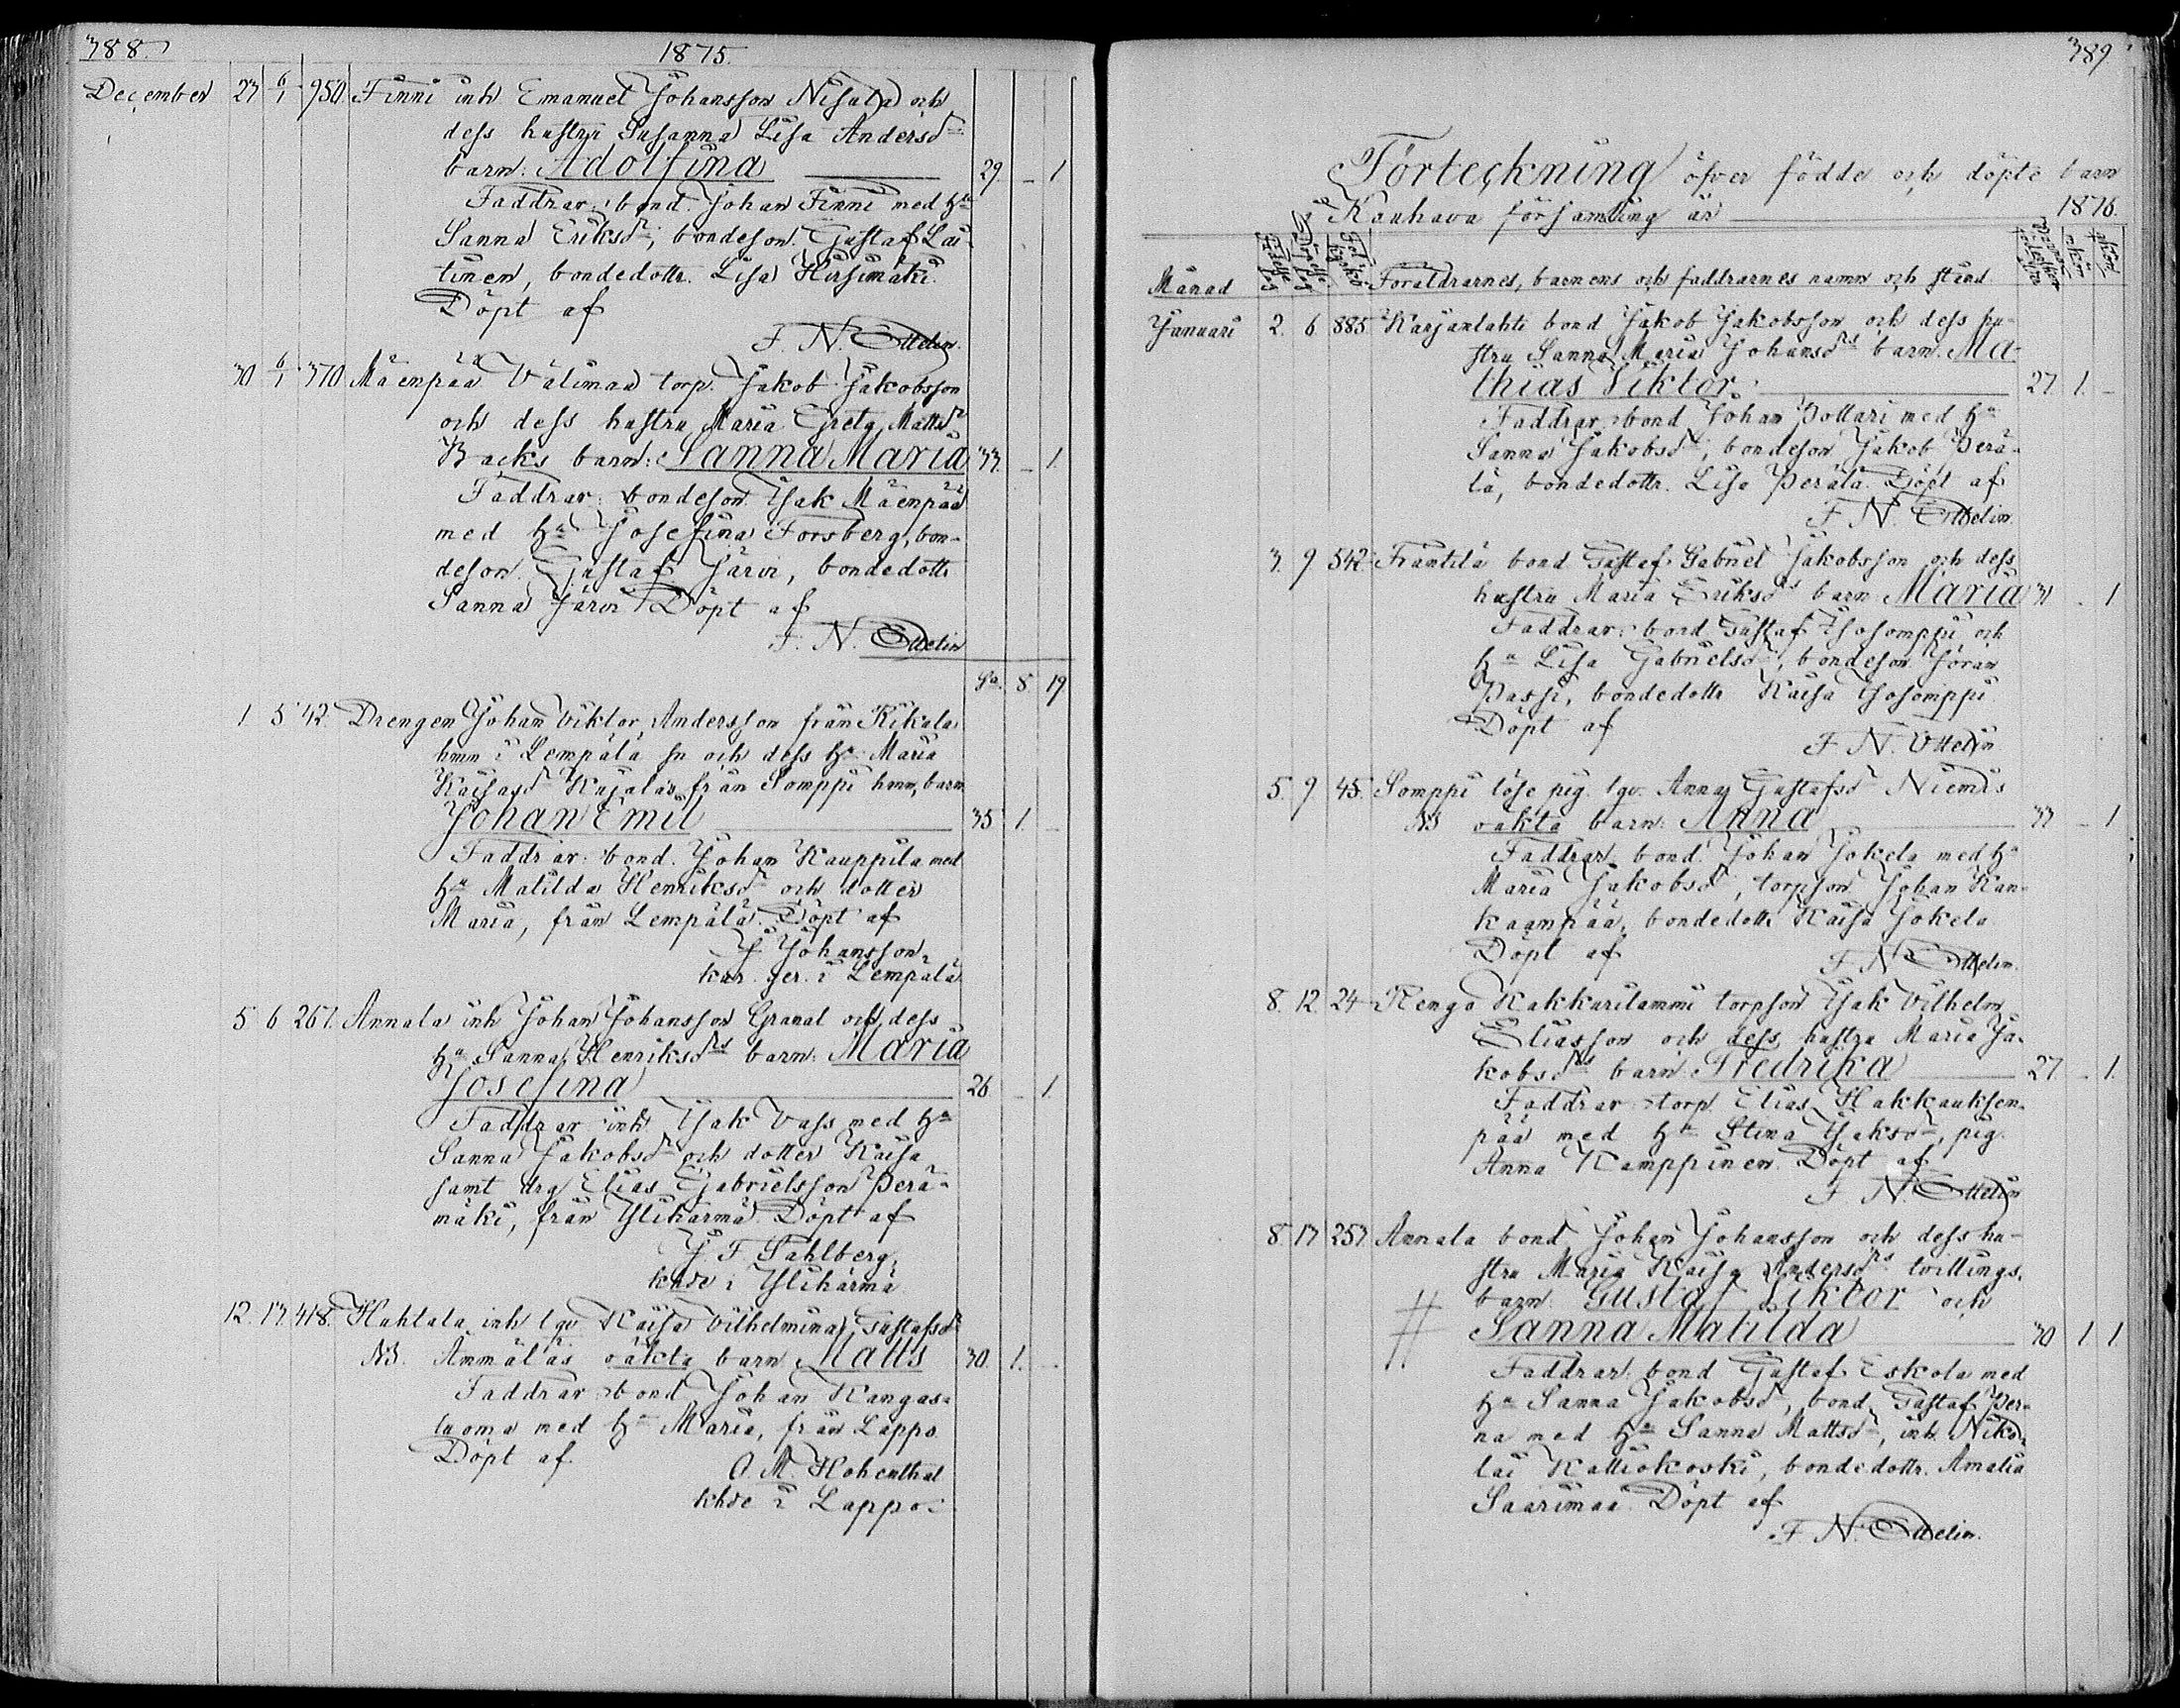 388.
1875.
December 27 6/1 950. Finni inh Emanuel Johansson Nisula och
dess hustru Susanna Lisa Andersdr
barn: Adolfina 29. – 1
Faddrar: bond. Johan Finni med ha
Sanna Eriksdr, bondeson. Gustaf Lai-
tinen, bondedottr. Lisa Hirsimäki.
Döpt af
F. N. Ottelin.
30 6/1 370 Mäenpää Välimaa torp. Jakob Jakobsson
och dess hustru Maria Greta Mattsdr
Backs barn: Sanna Maria 33. – 1.
Faddrar: bondeson. Isak Mäenpää
med ha Josefina Forsberg, bon-
deson. Gustaf Järvi, bondedottr
Sanna Järvi Döpt af
F. N. Ottelin
Sa. 8 19
1 5 42. Drengen Johan Viktor Andersson från Kikala
hmn i Lempälä sn och dess ha Maria
Kaisasdr Kajalas från Somppi hmn, barn
Johan Emil 35 1. –
Faddrar: bond. Johan Kauppila med
ha Matilda Henriksdr och dotter
Maria, från Lempälä. Döpt af
J Johansson,
kap. ger. i Lempälä
5 6 267. Annala inh Johan Johansson Granat och dess
ha Sanna Henriksdrs barn: Maria
Josefina 26 – 1.
Faddrar inh Isak Vass med ha
Sanna Jakobsdr och dotter Kaisa
samt drg Elias Gabrielsson Perä-
mäki, från Ylihärmä. Döpt af
J. F. Sahlberg,
khde i Ylihärmä
12. 17. 418. Huhtala inh lqv Kaisa Vilhelmina Gustafsdr
NB. Ämmäläs oäkta barn Matts 30. 1. –
Faddrar bond Johan Kangas-
luoma med ha Maria, från Lappo.
Döpt af
O. M. Hohenthal
khde i Lappo.
389
Förteckning öfver födde och döpte barn
i Kauhava församling år 1876.
Månad Föräldrarnes, barnens och faddrarnes namn och stånd
Januari 2. 6 885. Karjanlahti bond Jakob Jakobsson och dess hu-
stru Sanna Maria Johansdrs barn. Ma-
thias Viktor 27 1. –
Faddrar bond Johan Pollari med ha
Sanna Jakobsdr, bondeson Jakob Perä-
lä, bondedottr. Lisa Perälä. Döpt af
F N. Ottelin.
3. 9 542 Främtilä bond Gustaf Gabriel Jakobsson och dess
hustru Maria Eriksdrs barn Maria 31 – 1
Faddrar: bond Gustaf Isosomppi och
ha Lisa Gabrielsdr, bondeson Jöran
Passi, bondedottr Kaisa Isosomppi
Döpt af
F N. Ottelin
5. 9 45. Somppi löse pig. lqv. Anna Gustafsdr Niemis
NB oäkta barn: Anna 33 – 1
Faddrar bond. Johan Jokela med ha
Maria Jakobsdr, torpson Johan Kan-
kaanpää, bondedottr Kaisa Jokela
Döpt af
F N Ottelin.
8. 12. 24 Rengo Kakkurilammi torpson Isak Vilhelm
Eliasson och dess hustru Maria Ja-
kobsdrs barn Fredrika 27 – 1.
Faddrar torp. Elias Hakkauksen-
pää med ha Stina Isaksdr, pig.
Anna Kamppinen. Döpt af
F N. Ottelin
8. 17 257 Annala bond Johan Johansson och dess hu-
stru Maria Kaisa Andersdrs tvillings-
barn Gustaf Viktor och
# Sanna Matilda 30 1. 1.
Faddrar bond Gustaf Eskola med
ha Sanna Jakobsdr, bond. Gustaf Per-
na med ha Sanna Mattsdr, inh. Niko-
lai Kalliokoski, bondedottr. Amalia
Saarimaa. Döpt af
F N. Ottelin.